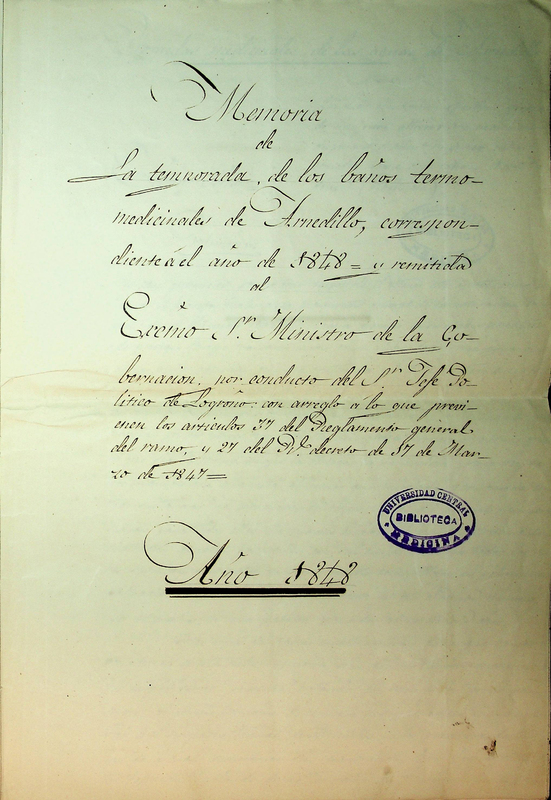 Memoria
de
La temporada, de los baños termo-
medicinales de Arnedillo, correspon-
diente á el año de 1848 = y remitida
al
Excmo Sr. Ministro de la Go-
bernacion, por conducto del Sr. Jefe Po-
litico de Logroño: con arreglo a lo que previ-
enen los articulos 37 del Reglamento general
del ramo, y 27 del Rl. decreto de 17 de Mar-
zo de 1847=
UNIVERSIDAD CENTRAL
BIBLIOTECA
MEDICINA
Año 1848